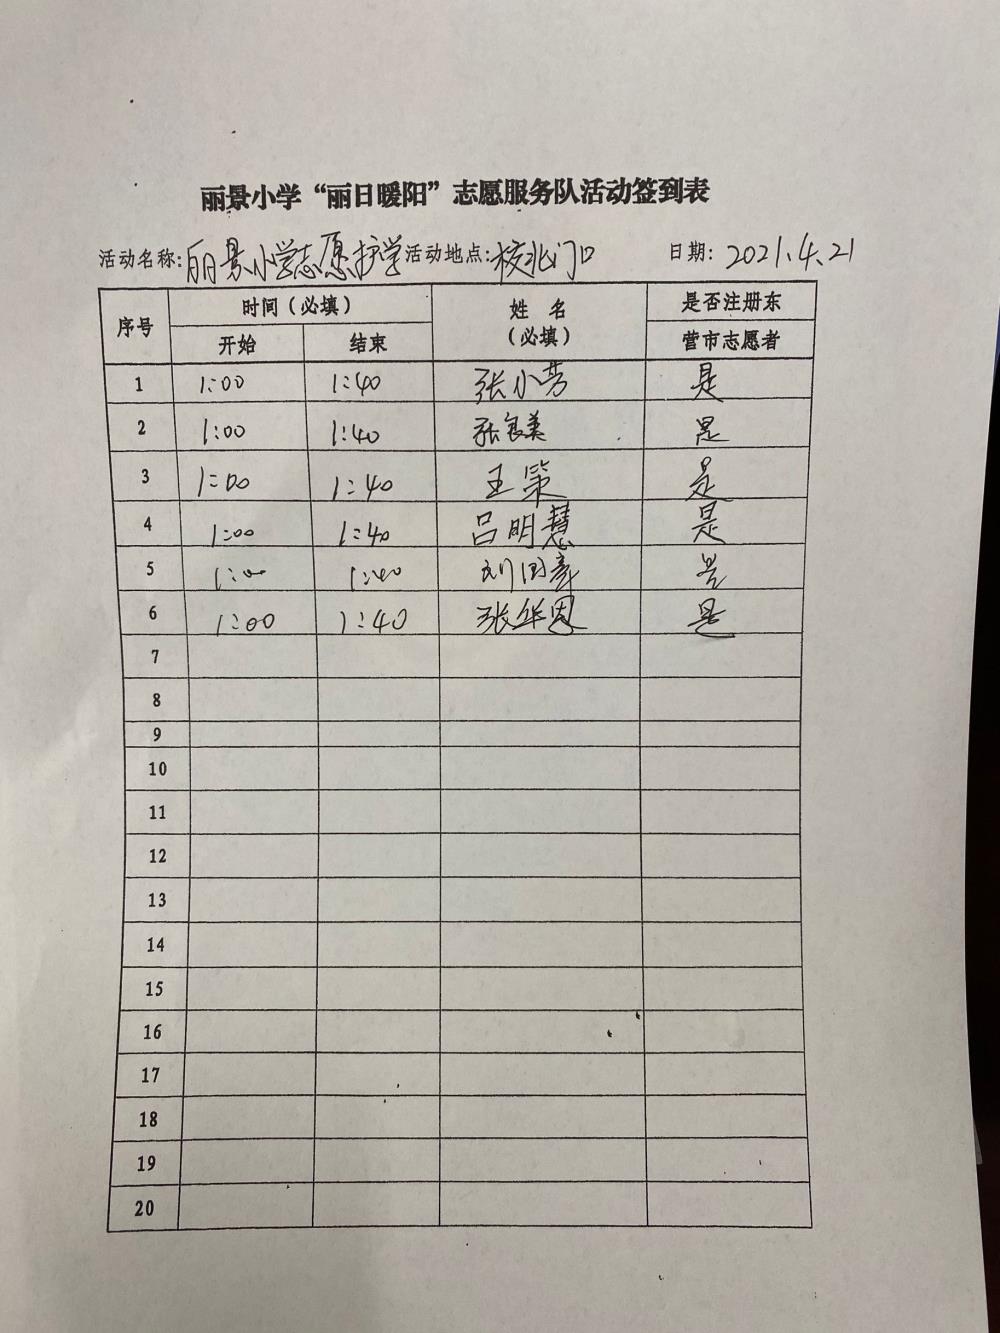 丽景小学“丽日暖阳”志愿服务队活动签到表
活动名称:丽景小学志愿护学 活动地点:校北门口 日期: 2021.4.21
序号 时间（必填） 姓 名（必填） 是否注册东营市志愿者
开始 结束
1 1:00 1:40 张小芳 是
2 1:00 1:40 张美 是
3 1:00 1:40 王策 是
4 1:00 1:40 吕明慧 是
5 1:00 1:40 刘 是
6 1:00 1:40 张华恩 是
7
8
9
10
11
12
13
14
15
16
17
18
19
20